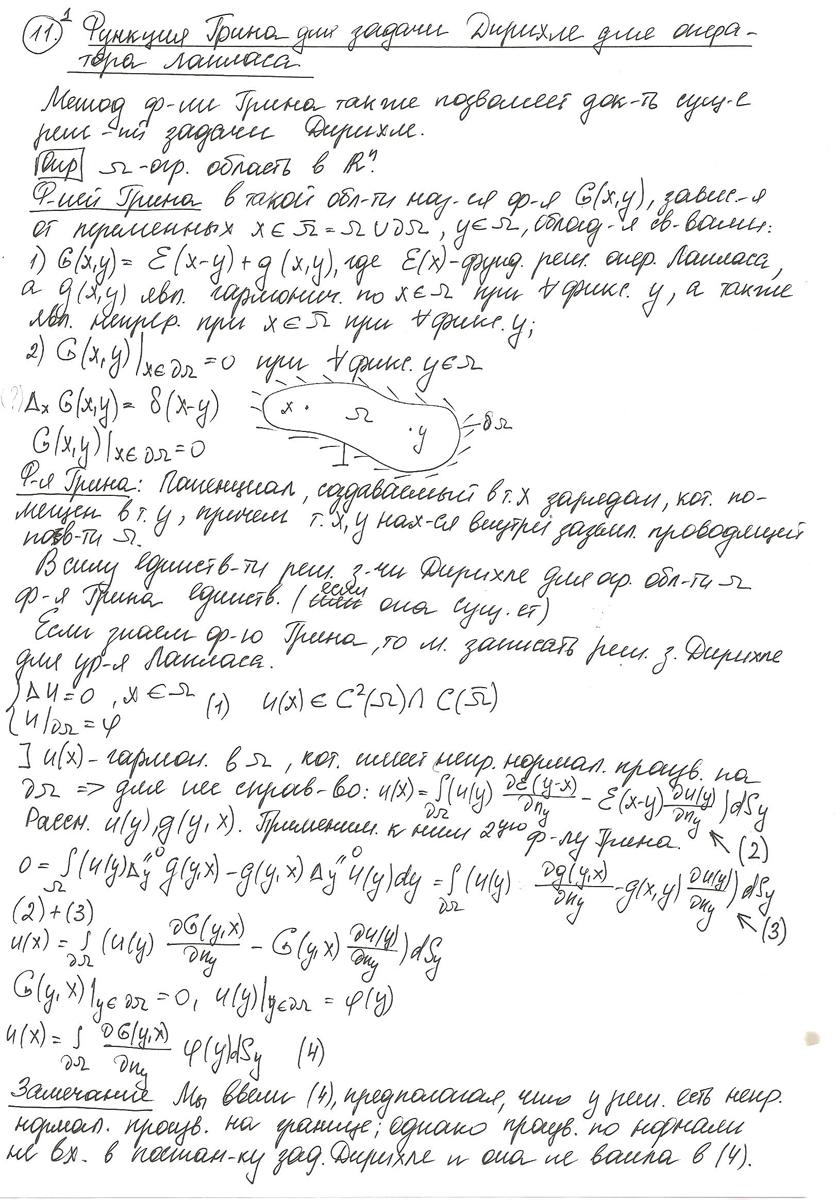 11.¹ Функция Грина для задачи Дирихле для опера-
тора Лапласа.
Метод ф-ии Грина также позволяет док-ть сущ-е
реш-ий задачи Дирихле.
Опр Ω-огр. область в ℝⁿ.
Ф-ией Грина в такой обл-ти наз-ся ф-я G(x,y), завис-я
от переменных x∈Ω̄=Ω∪∂Ω, y∈Ω, облад-я св-вами:
1) G(x,y)= Ɛ(x-y)+g(x,y), где Ɛ(x)-фунд. реш. опер. Лапласа,
а g(x,y) явл. гармонич. по x∈Ω при ∀ фикс. y, а также
явл. непрер. при x∈Ω̄ при ∀ фикс. y;
2) G(x,y)|x∈∂Ω=0 при ∀ фикс. y∈Ω
(?) Δx G(x,y)= δ(x-y)
G(x,y)|x∈∂Ω=0
x · Ω · y ∂Ω
Ф-я Грина: Потенциал, создаваемый в т. x зарядом, кот. по-
мещен в т. y, причем т. x,y нах-ся внутри заземл. проводящей
пов-ти Ω.
В силу единств-ти реш. з-чи Дирихле для огр. обл-ти Ω
ф-я Грина единств. (если она сущ-ет)
Если знаем ф-ю Грина, то м. записать реш. з. Дирихле
для ур-я Лапласа.
{ΔU=0, x∈Ω (1) u(x)∈C²(Ω)∩C(Ω̄)
{U|∂Ω=φ
] u(x)-гармон. в Ω, кот. имеет непр. нормал. произв. на
∂Ω => для нее справ-во: u(x)=∫∂Ω(u(y) ∂Ɛ(y-x)/∂ny - Ɛ(x-y) ∂u(y)/∂ny)dSy
Рассм. u(y), g(y,x). Применим к ним 2ую ф-лу Грина. ↖(2)
0=∫Ω(u(y)Δy g(y,x)-g(y,x)Δy u(y)dy=∫∂Ω(u(y) ∂g(y,x)/∂ny -g(x,y) ∂u(y)/∂ny)dSy
(2)+(3) ↖(3)
u(x)=∫∂Ω(u(y) ∂G(y,x)/∂ny - G(y,x) ∂u(y)/∂ny)dSy
G(y,x)|y∈∂Ω=0, u(y)|y∈∂Ω=φ(y)
u(x)=∫∂Ω ∂G(y,x)/∂ny φ(y)dSy (4)
Замечание Мы ввели (4), предполагая, что у реш. есть непр.
нормал. произв. на границе; однако произв. по нормали
не вх. в постан-ку зад. Дирихле и она не вошла в (4).